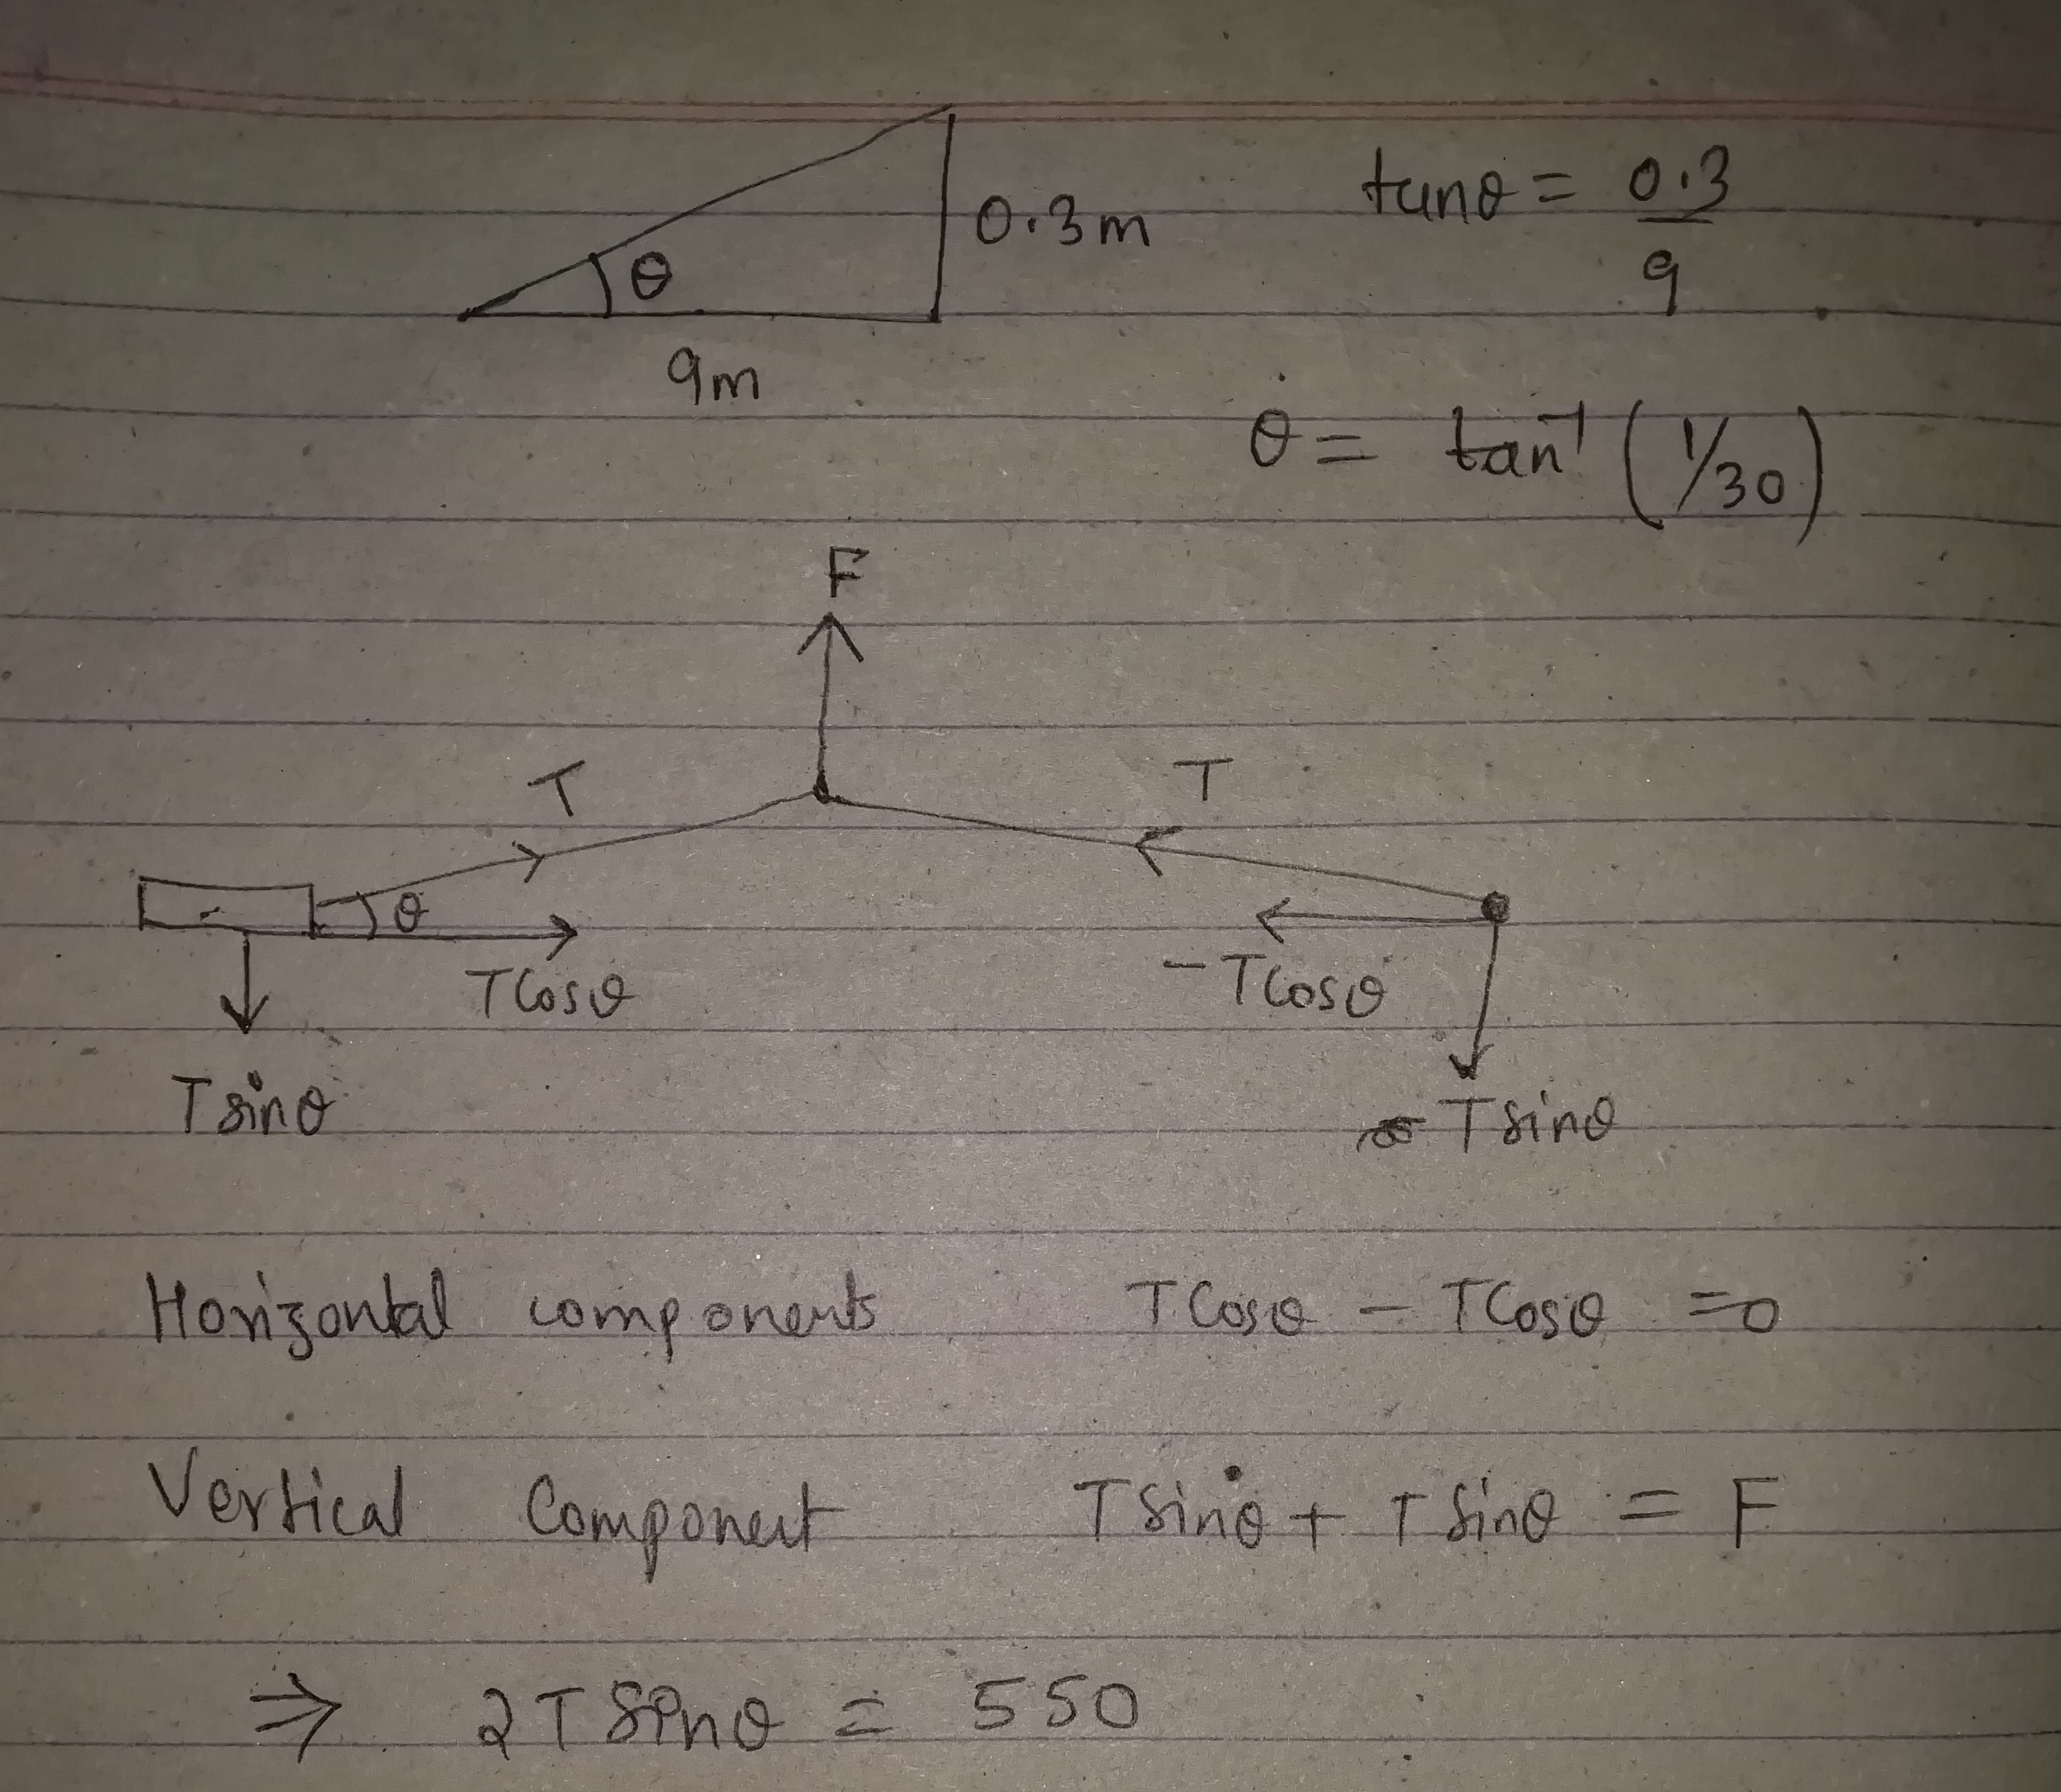 0.3m
tanθ = 0.3/9
θ
9m
θ = tan⁻¹ (1/30)
F
T
T
θ
TCosθ
-TCosθ
Tsinθ
Tsinθ
Horizontal components TCosθ - TCosθ =0
Vertical Component Tsinθ + Tsinθ = F
⇒ 2Tsinθ = 550